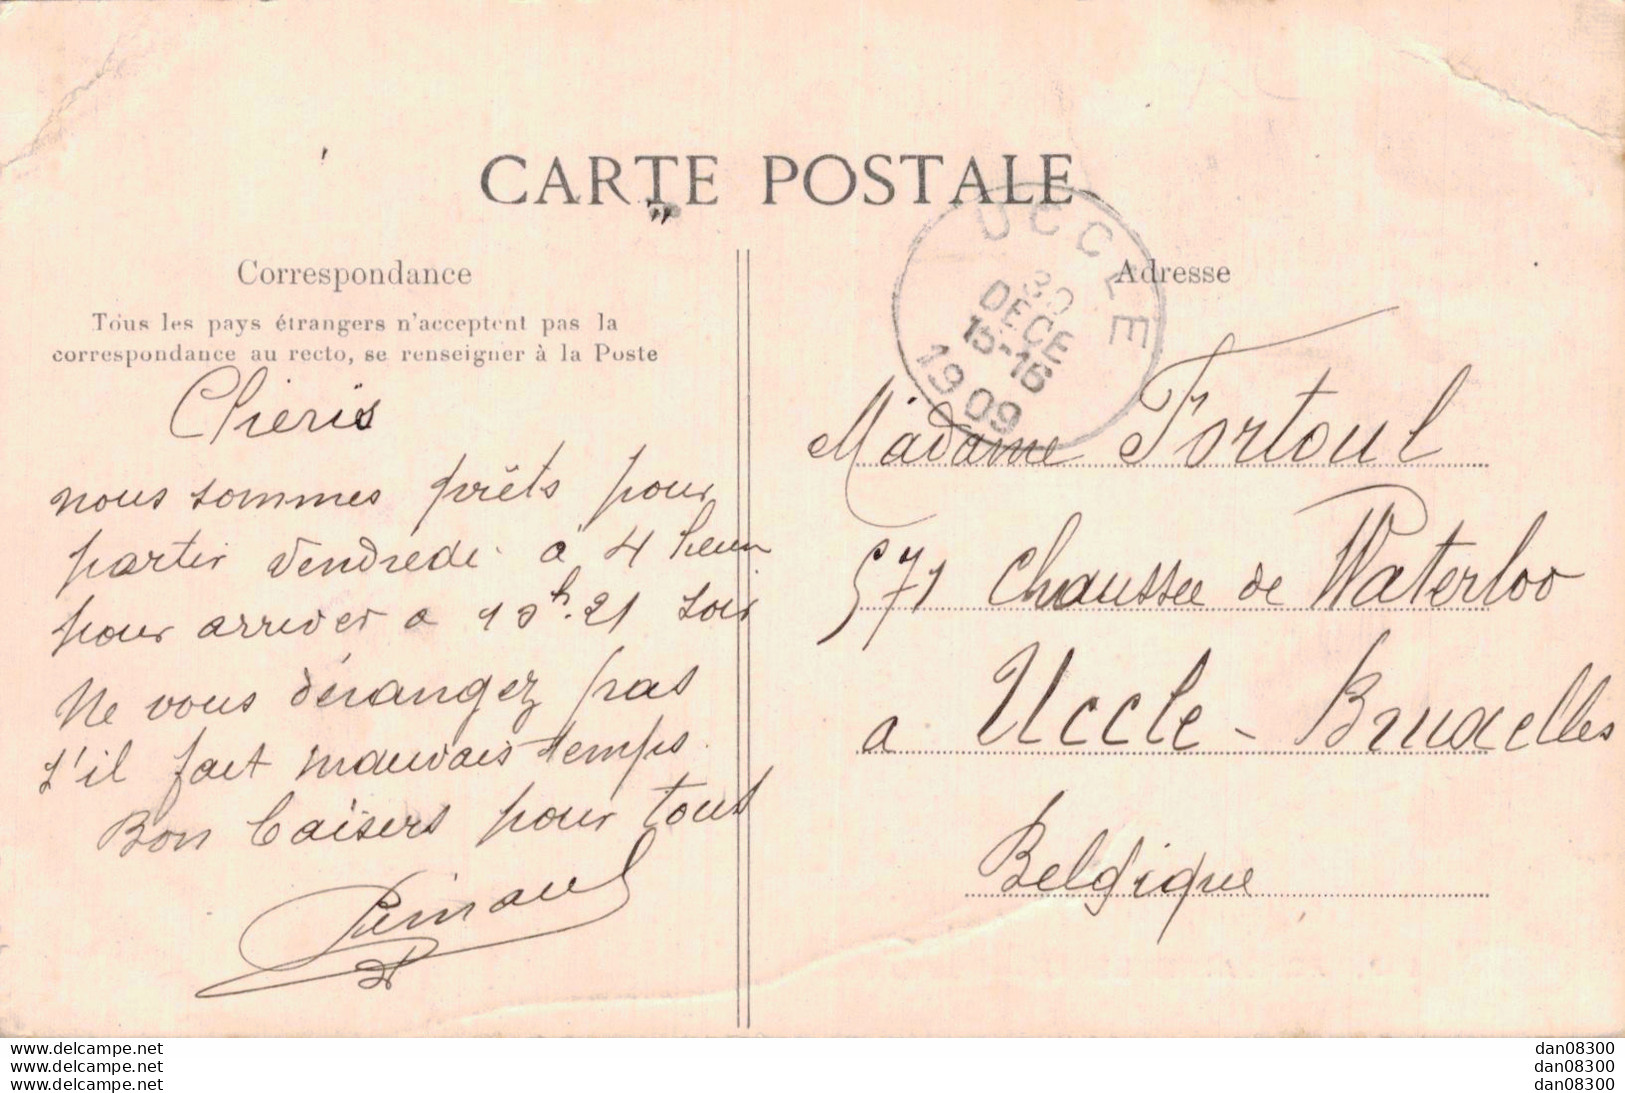 CARTE POSTALE
Correspondance
Tous les pays étrangers n'acceptent pas la
correspondance au recto, se renseigner à la Poste
Cheris
nous sommes prêts pour
partir Vendredi à 4 heur
pour arriver a 19 h. 21 soir
Ne vous dérangez pas
s'il fait mauvais temps.
Bon baisers pour tous
UCCLE
30
DECE
15-16
1909
Adresse
Madame Fortoul
571 Chaussée de Waterloo
a Uccle - Bruxelles
Belgique
www.delcampe.net
www.delcampe.net
www.delcampe.net
dan08300
dan08300
dan08300